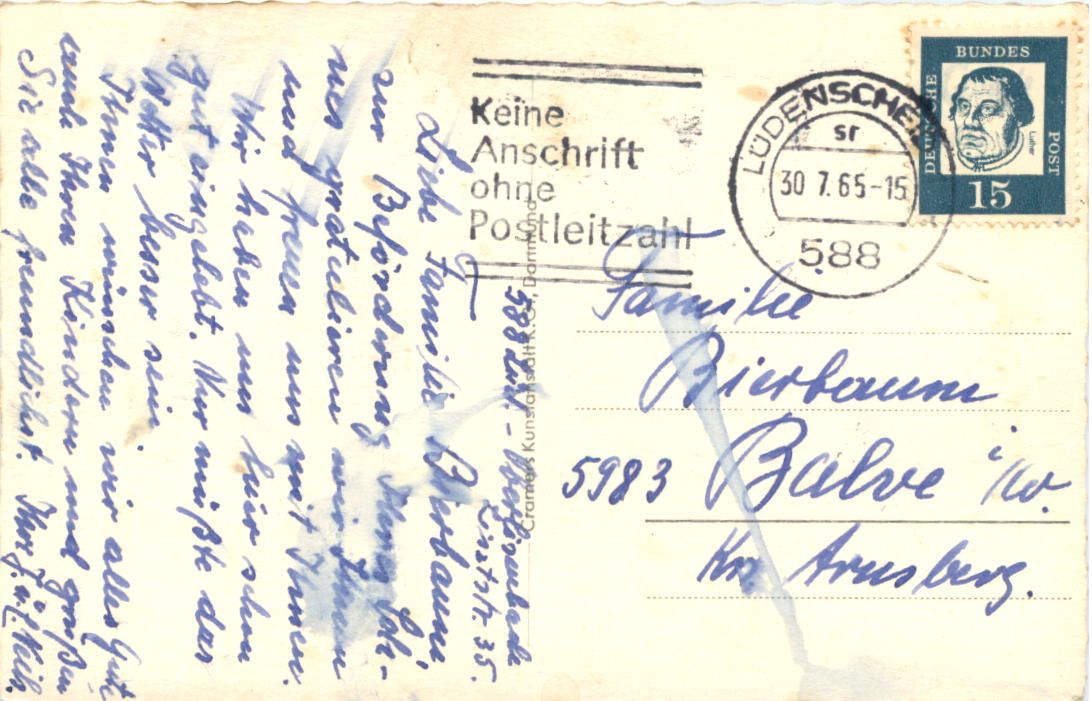 588 Lüd. - Oberlösenbach
Liststr. 35.
Liebe Familie Bierbaum,
zur Beförderung Ihres
mes gratulieren wir Ihnen
und freuen uns mit Ihnen.
Wir haben uns hier schon
gut eingelebt. Nur müßte das
Wetter besser sein.
Ihnen wünschen wir alles Gute
auch Ihren Kindern und grüßen
Sie alle freundlichst. Ihre
Cramers Kunstanstalt K.G., Dortmund
Keine
Anschrift
ohne
Postleitzahl
LÜDENSCHEID
sr
30 7.65-15
588
DEUTSCHE BUNDES POST
Luther
15
Familie
Bierbaum
5983 Balve i/W
Kr. Arnsberg.